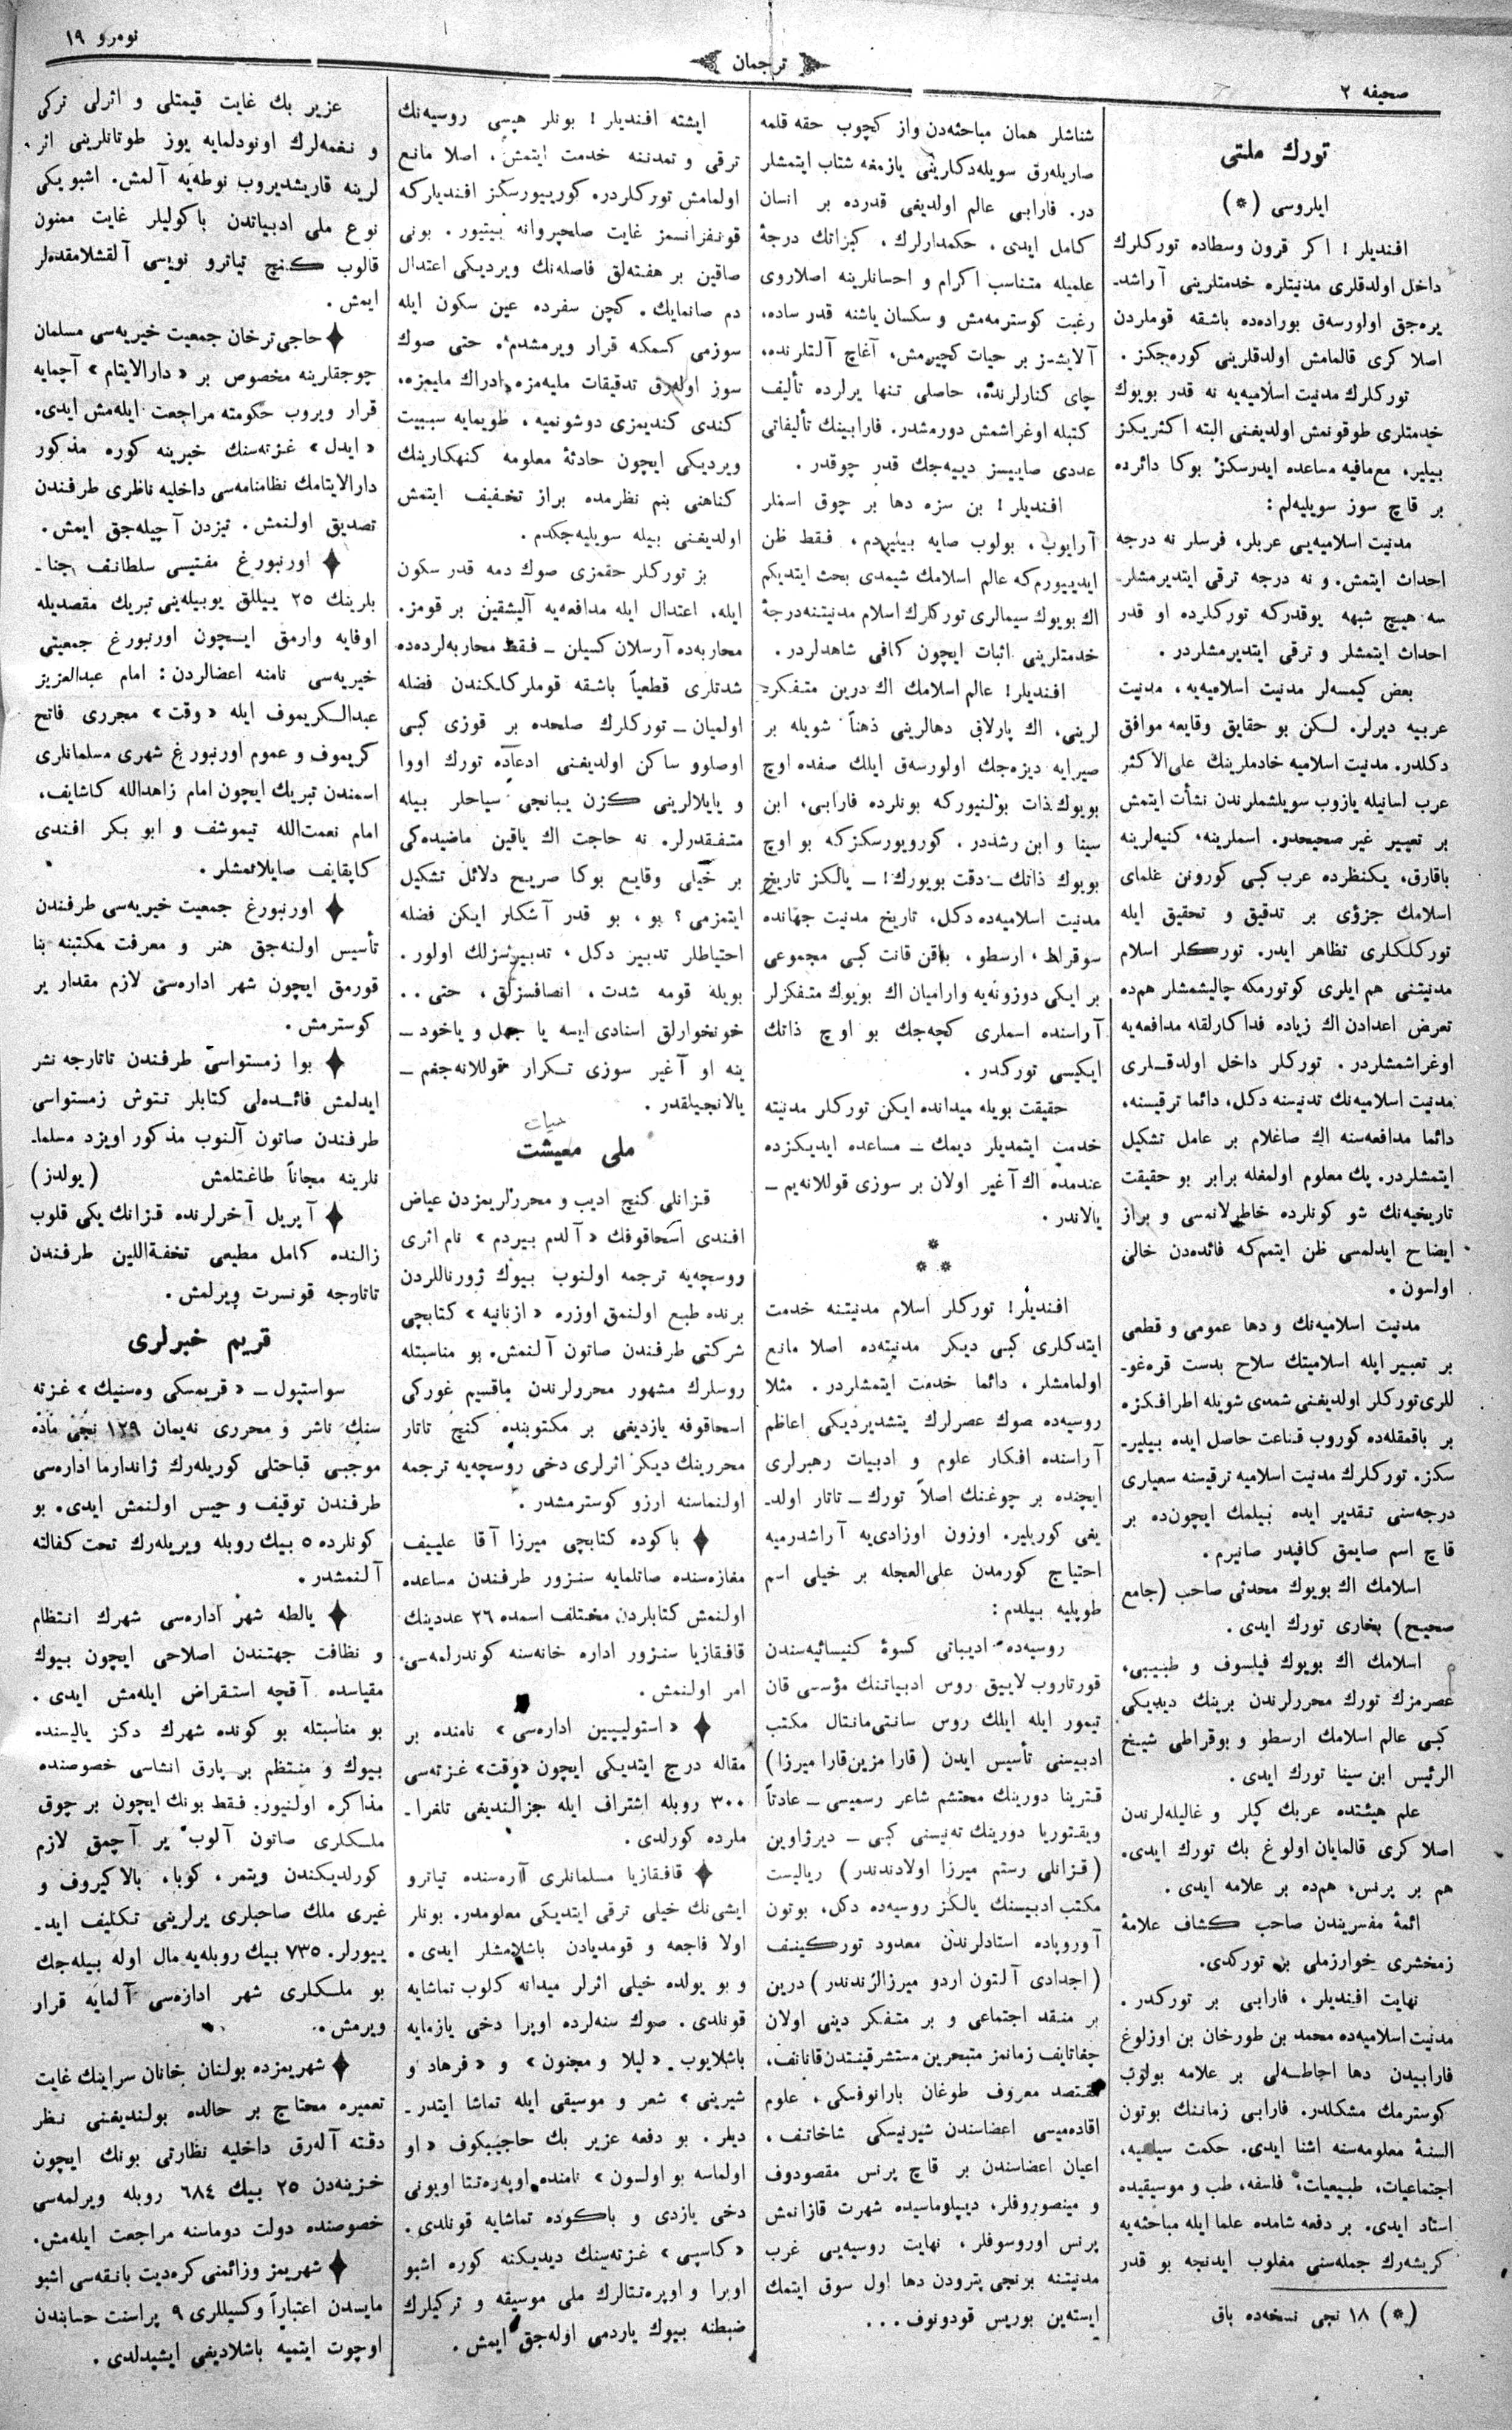 صحیفه ٢
ترجمان
نومرو ١٩
تورك ملتی
ایلروسی (*)
افندیلر! اكر قرون وسطاده توركلرك
داخل اولدقلری مدنیتلره خدمتلرینی آراشد-
یره‌جق اولورسه‌ق بوراده‌ده باشقه قوملردن
اصلا كری قالمامش اولدقلرینی كوره‌جكز.
توركلرك مدنیت اسلامیه‌یه نه قدر بویوك
خیدمتلری طوقونمش اولدیغنی البته اكثریكز
بیلیر، مع‌مافیه مساعده ایدرسكز بوكا دائره
بر قاچ سوز سویلیه‌لم:
مدنیت اسلامیه‌یی عربلر، فرسلر نه درجه
احداث ایتمش. و نه درجه ترقی ایتدیرمشلر-
سه هیچ شبهه یوقدركه توركلرده او قدر
احداث ایتمشلر و ترقی ایتدیرمشلردر.
بعض كیمسه‌لر مدنیت اسلامیه‌یه، مدنیت
عربیه دیرلر. لكن بو حقایق وقایعه موافق
دكلدر. مدنیت اسلامیه خادملرینك علی‌الاكثر
عرب لسانیله یازوب سویلشملرندن نشأت ایتمش
بر تعبیر غیر صحیحدر. اسملرینه، كنیه‌لرینه
باقارق، یكنظرده عرب كبی كورونن علمای
اسلامك جزؤی بر تدقیق و تحقیق ایله
توركلكلری تظاهر ایدر. توركلر اسلام
مدنیتنی هم ایلری كوتورمكه چالیشمشلر هم‌ده
تعرض اعدادن اك زیاده فداكارلقله مدافعه‌یه
اوغراشمشلردر. توركلر داخل اولدقلری
مدنیت اسلامیه‌نك تدنیسنه دكل، دائما ترقیسنه،
دائما مدافعه‌سنه اك صاغلام بر عامل تشكیل
ایتمشلردر. پك معلوم اولمغله برابر بو حقیقت
تاریخیه‌نك شو كونلرده خاطرلانمسی و براز
ایضاح ایدلمسی ظن ایتمم‌كه فائده‌دن خالی
اولسون.
مدنیت اسلامیه‌نك و دها عمومی و قطعی
بر تعبیر ایله اسلامیتك سلاح بدست قره‌غو-
للری توركلر اولدیغنی شمدی شویله اطرافكزه
بر باقمقله‌ده كوروب قناعت حاصل ایده بیلیر-
سكز. توركلرك مدنیت اسلامیه ترقیسنه سعیاری
درجه‌سنی تقدیر ایده بیلمك ایچون‌ده بر
قاچ اسم صایمق كافیدر صانیرم.
اسلامك اك بویوك محدثی صاحب (جامع
صحیح) بخاری تورك ایدی.
اسلامك اك بویوك فیلسوف و طبیبی،
عصرمزك تورك محررلرندن برینك دیدیكی
كبی عالم اسلامك ارسطو و بوقراطی شیخ
الرئیس ابن سینا تورك ایدی.
علم هیئتده عربك كپلر و غالیله‌لرندن
اصلا كری قالمایان اولوغ بك تورك ایدی.
هم بر پرنس، هم‌ده بر علامه ایدی.
ائمهٔ مفسریندن صاحب كشاف علامهٔ
زمخشری خوارزملی بر توركدی.
نهایت افندیلر، فارابی بر توركدر.
مدنیت اسلامیه‌ده محمد بن طورخان بن اوزلوغ
فارابیدن دها احاطه‌لی بر علامه بولوب
كوسترمك مشكلدر. فارابی زماننك بوتون
السنهٔ معلومه‌سنه اشنا ایدی. حكمت سیاسیه،
اجتماعیات، طبیعیات، فلسفه، طب و موسیقیده
استاد ایدی. بر دفعه شامده علما ایله مباحثه‌یه
كریشه‌رك جمله‌سنی مغلوب ایدنجه بو قدر
(*) ١٨ نجی نسخه‌ده باق
شناشلر همان مباحثه‌دن واز كچوب حقه قلمه
صاریله‌رق سویله‌دكلرینی یازمغه شتاب ایتمشلر
در. فارابی عالم اولدیغی قدرده بر انسان
كامل ایدی. حكمدارلرك، كبراتك درجهٔ
علمیله متناسب اكرام و احسانلرینه اصلاروی
رغبت كوسترمه‌مش و سكسان یاشنه قدر ساده،
آلایشز بر حیات كچیرمش، آغاچ آلتلرنده،
چای كنارلرنده، حاصلی تنها یرلرده تألیف
كتبله اوغراشمش دورمشدر. فارابینك تألیفاتی
عددی صاییسز دییه‌جك قدر چوقدر.
افندیلر! بن سزه دها بر چوق اسملر
آرایوب، بولوب صایه بیلیردم، فقط ظن
ایدییورم‌كه عالم اسلامك شیمدی بحث ایتدیكم
اك بویوك سیمالری توركلرك اسلام مدنیتنه‌درجهٔ
خدمتلرینی اثبات ایچون كافی شاهدلردر.
افندیلر! عالم اسلامك اك درین متفكر-
لرینی، اك پارلاق دهالرینی ذهناً شویله بر
صیرایه دیزه‌جك اولورسه‌ق ایلك صفده اوچ
بویوك ذات بولنیوركه بونلرده فارابی، ابن
سینا و ابن رشددر. كورویورسكزكه بو اوچ
بویوك ذاتك – دقت بویورك! – یالكز تاریخ
مدنیت اسلامیه‌ده دكل، تاریخ مدنیت جهانده
سوقراط، ارسطو، باقن قانت كبی مجموعی
بر ایكی دوزونه‌یه وارامیان اك بویوك متفكرلر
آراسنده اسملری كچه‌جك بو اوچ ذاتك
ایكیسی توركدر.
حقیقت بویله میدانده ایكن توركلر مدنیته
خدمت ایتمدیلر دیمك – مساعده ایدیكزده
عندمده اك آغیر اولان بر سوزی قوللانه‌یم –
یالاندر.
* * *
افندیلر! توركلر اسلام مدنیتنه خدمت
ایتدكلری كبی دیكر مدنیته‌ده اصلا مانع
اولمامشلر، دائما خدمت ایتمشلردر. مثلا
روسیه‌ده صوك عصرلرك یتشدیردیكی اعاظم
آراسنده افكار علوم و ادبیات رهبرلری
ایچنده بر چوغنك اصلاً تورك – تاتار اولد-
یغی كوریلیر. اوزون اوزادی‌یه آراشدرمیه
احتیاج كورمدن علی‌العجله بر خیلی اسم
طوپلیه بیلدم:
روسیه‌ده ادبیاتی كسوهٔ كنیسائیه‌سندن
قورتاروب لاییق روس ادبیاتنك مؤسسی قان
تیمور ایله ایلك روس سانتی‌مانتال مكتب
ادبیسنی تأسیس ایدن (قارا مزین‌قارا میرزا)
قترینا دورینك محتشم شاعر رسمیسی – عادتاً
ویقتوریا دورینك ته‌نیسنی كبی – دیرژاوین
(قزانلی رستم میرزا اولادندندر) ریالیست
مكتب ادبیسنك یالكز روسیه‌ده دكل، بوتون
آوروپاده استادلرندن معدود توركینف
(اجدادی آلتون اردو میرزالرندندر) درین
بر منقد اجتماعی و بر متفكر دینی اولان
چغاتایف زمانمز متبحرین مستشرقیندن‌قانانف،
مقتصد معروف طوغان بارانوفسكی، علوم
اقاده‌میسی اعضاسندن شیرنیسكی شاخاتف،
اعیان اعضاسندن بر قاچ پرنس مقصودوف
و مینصوروفلر، دیپلوماسیده شهرت قازانمش
پرنس اوروسوفلر، نهایت روسیه‌یی غرب
مدنیتنه برنجی پترودن دها اول سوق ایتمك
ایسته‌ین بوریس قودونوف...
ایشته افندیلر! بونلر هپسی روسیه‌نك
ترقی و تمدننه خدمت ایتمش، اصلا مانع
اولمامش توركلردر. كوریپورسكز افندیلركه
قونفرانسمز غایت صلحپروانه بیتیور. بونی
صاقین بر هفته‌لق فاصله‌نك ویردیكی اعتدال
دم صانمایك. كچن سفرده عین سكون ایله
سوزمی كسمكه قرار ویرمشدم. حتی صوك
سوز اوله‌رق تدقیقات ملیه‌مزه، ادراك ملیمزه،
كندی كندیمزی دوشونمیه، طویمایه سببیت
ویردیكی ایچون حادثهٔ معلومه كنهكارینك
كناهنی بنم نظرمده براز تخفیف ایتمش
اولدیغنی بیله سویلیه‌جكدم.
بز توركلر حقمزی صوك دمه قدر سكون
ایله، اعتدال ایله مدافعه‌یه آلیشقین بر قومز.
محاربه‌ده آرسلان كسیلن – فقط محاربه‌لرده‌ده
شدتلری قطعیاً باشقه قوملركلكندن فضله
اولمیان – توركلرك صلحده بر قوزی كبی
اوصلوو ساكن اولدیغنی ادعاده تورك اووا
و یایلالرینی كزن یبانجی سیاحلر بیله
متفقدرلر. نه حاجت اك یاقین ماضیده‌كی
بر خیلی وقایع بوكا صریح دلائل تشكیل
ایتمزمی؟ بو، بو قدر آشكار ایكن فضله
احتیاطلر تدبیر دكل، تدبیرسزلك اولور.
بویله قومه شدت، انصافسزلق، حتی..
خونخوارلق اسنادی ایسه یا جهل و یاخود –
ینه او آغیر سوزی تكرار قوللانه‌جغم –
یالانجیلقدر.
حیات
ملی معیشت
قزانلی كنج ادیب و محررلریمزدن عیاض
افندی اسحاقوفك «آلدم بیردم» نام اثری
روسچه‌یه ترجمه اولنوب بیوك ژورناللردن
برنده طبع اولنمق اوزره «ازنانیه» كتابچی
شركتی طرفندن صاتون آلنمش. بو مناسبتله
روسلرك مشهور محررلرندن ماقسیم غوركی
اسحاقوفه یازدیغی بر مكتوبنده كنج تاتار
محررینك دیكر اثرلری دخی روسچه‌یه ترجمه
اولنماسنه ارزو كوسترمشدر.
✦ باكوده كتابچی میرزا آقا علییف
مغازه‌سنده صاتلمایه سنزور طرفندن مساعده
اولنمش كتابلردن مختلف اسمده ٢٦ عددینك
قافقازیا سنزور اداره خانه‌سنه كوندرلمه‌سی
امر اولنمش.
✦ «استولیپین اداره‌سی» نامنده بر
مقاله درج ایتدیكی ایچون «وقت» غزته‌سی
٣٠٠ روبله اشتراف ایله جزالندیغی تلغرا-
ملرده كورلدی.
✦ قافقازیا مسلمانلری آره‌سنده تیاترو
ایشی‌نك خیلی ترقی ایتدیكی معلومدر. بونلر
اولا فاجعه و قومدیادن باشلامشلر ایدی.
و بو یولده خیلی اثرلر میدانه كلوب تماشایه
قونلدی. صوك سنه‌لرده اوپرا دخی یازمایه
باشلایوب «لیلا و مجنون» و «فرهاد و
شیرینی» شعر و موسیقی ایله تماشا ایتدر-
دیلر. بو دفعه عزیر بك حاجیبیكوف «او
اولماسه بو اولسون» نامنده اوپه‌ره‌تتا اویونی
دخی یازدی و باكوده تماشایه قونلدی.
«كاسپی» غزته‌سنك دیدیكنه كوره اشبو
اوپرا و اوپره‌تتالرك ملی موسیقه و تركیلرك
ضبطنه بیوك یاردمی اوله‌جق ایمش.
عزیر بك غایت قیمتلی و اثرلی تركی
و نغمه‌لرك اونودلمایه یوز طوتانلرینی اثر
لرینه قاریشدیروب نوطه‌یه آلمش. اشبو یكی
نوع ملی ادبیاتدن باكولیلر غایت ممنون
قالوب كنج تیاترو نویسی آلقشلامقده‌لر
ایمش.
✦ حاجی‌ترخان جمعیت خیریه‌سی مسلمان
چوجقلرینه مخصوص بر «دارالایتام» آچمایه
قرار ویروب حكومته مراجعت ایله‌مش ایدی.
«ایدل» غزته‌سنك خبرینه كوره مذكور
دارالایتامك نظامنامه‌سی داخلیه ناظری طرفندن
تصدیق اولنمش. تیزدن آچیله‌جق ایمش.
✦ اورنبورغ مفتیسی سلطانف جنا-
بلرینك ٢٥ ییللق یوبیله‌ینی تبریك مقصدیله
اوفایه وارمق ایچون اورنبورغ جمعیتی
خیریه‌سی نامنه اعضالردن: امام عبدالعزیز
عبدالكریموف ایله «وقت» محرری فاتح
كریموف و عموم اورنبورغ شهری مسلمانلری
اسمندن تبریك ایچون امام زاهدالله كاشایف،
امام نعمت‌الله تیموشف و ابو بكر افندی
كاپقایف صایلانمشلر.
✦ اورنبورغ جمعیت خیریه‌سی طرفندن
تأسیس اولنه‌جق هنر و معرفت مكتبنه بنا
قورمق ایچون شهر اداره‌سی لازم مقدار یر
كوسترمش.
✦ بوا زمستواسی طرفندن تاتارجه نشر
ایدلمش فائده‌لی كتابلر تتوش زمستواسی
طرفندن صاتون آلنوب مذكور اویزد مسلما-
نلرینه مجاناً طاغتلمش (یولدز)
✦ آپریل آخرلرنده قزانك یكی قلوب
زالنده كامل مطیعی تحفةاللین طرفندن
تاتارجه قونسرت ویرلمش.
قریم خبرلری
سواستپول – «قریمسكی وه‌ستنیك» غزته
سنك ناشر و محرری نه‌یمان ١٢٩ نجی ماده
موجبی قباحتلی كوریله‌رك ژاندارما اداره‌سی
طرفندن توقیف و حبس اولنمش ایدی. بو
كونلرده ٥ بیك روبله ویریله‌رك تحت كفالته
آلنمشدر.
✦ یالطه شهر اداره‌سی شهرك انتظام
و نظافت جهتندن اصلاحی ایچون بیوك
مقیاسده آقچه استقراض ایله‌مش ایدی.
بو مناسبتله بو كونده شهرك دكز یالیسنده
بیوك و منتظم بر پارق انشاسی خصوصنده
مذاكره اولنیور. فقط بونك ایچون بر چوق
ملكلری صاتون آلوب یر آچمق لازم
كورلدیكندن ویتمر، كوبا، بالاكیروف و
غیری ملك صاحبلری یرلرینی تكلیف اید-
ییورلر. ٧٣٥ بیك روبله‌یه مال اوله بیله‌جك
بو ملكلری شهر اداره‌سی آلمایه قرار
ویرمش.
✦ شهریمزده بولنان خانان سراینك غایت
تعمیره محتاج بر حالده بولندیغنی نظر
دقته آله‌رق داخلیه نظارتی بونك ایچون
خزینه‌دن ٢٥ بیك ٦٨٤ روبله ویرلمه‌سی
خصوصنده دولت دوماسنه مراجعت ایله‌مش.
✦ شهریمز وزائمنی كره‌دیت بانقه‌سی اشبو
مایسدن اعتباراً وكسیللری ٩ پراسنت حسابندن
اوچوت ایتمیه باشلادیغی ایشیدلدی.